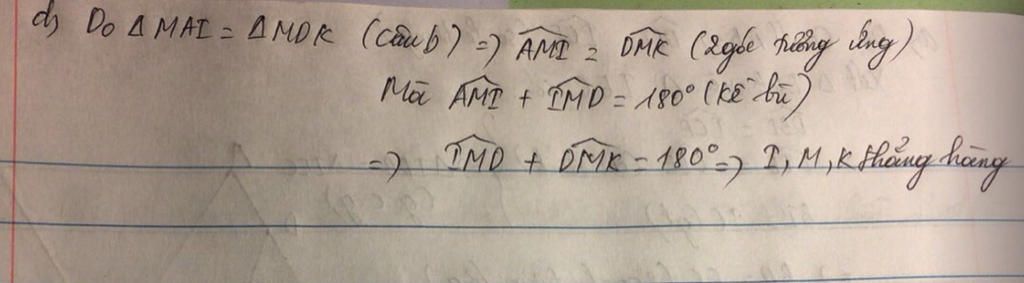 d) Do ΔMAI = ΔMDK (câu b) => \widehat{AMI} = \widehat{DMK} (2 góc tương ứng)
Mà \widehat{AMI} + \widehat{IMD} = 180° (kề bù)
=> \widehat{IMD} + \widehat{DMK} = 180° => I, M, K thẳng hàng